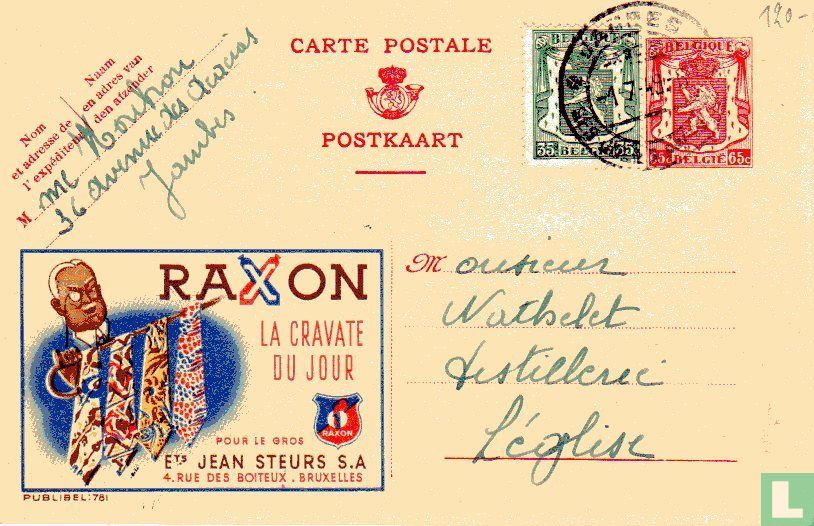 120-
CARTE POSTALE
POSTKAART
Nom Naam
et adresse de en adres van
l'expéditeur den afzender
M me Mouhon
36 avenue des Acacias
Jambes
BELGIQUE
35c BELGIË 35c
BELGIQUE
65c BELGIË 65c
Monsieur
Nathelet
distillerie
Léglise
RAXON
LA CRAVATE
DU JOUR
1
RAXON
POUR LE GROS
ETS JEAN STEURS S.A
4. RUE DES BOITEUX. BRUXELLES
PUBLIBEL: 781
Catawiki